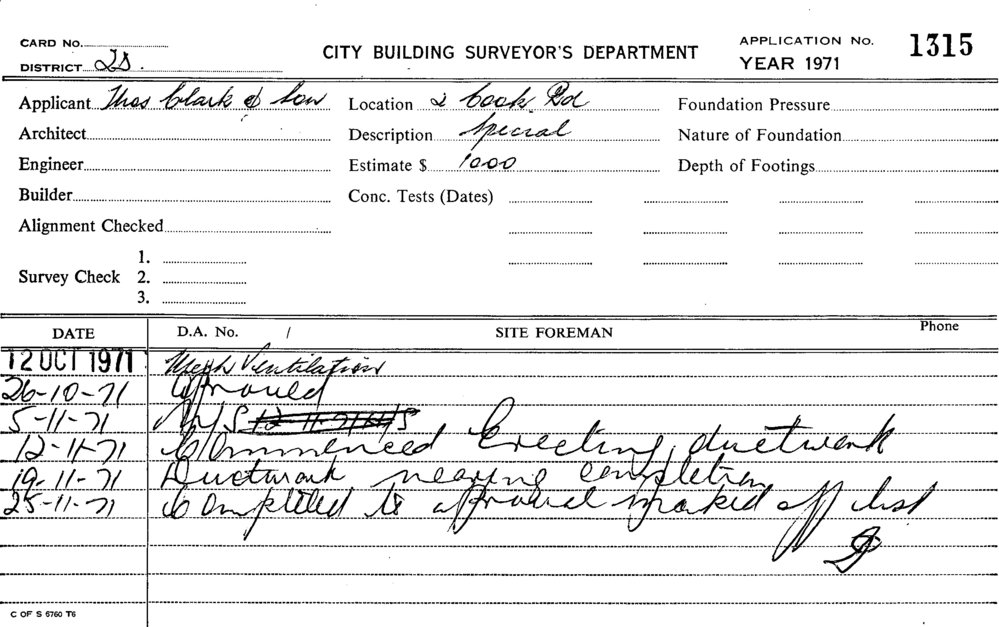 CARD No.
DISTRICT
CITY BUILDING SURVEYOR'S DEPARTMENT
APPLICATION No. 1315
YEAR 1971
Applicant Thos Clark & Son
Location 2 Cook Rd
Foundation Pressure
Architect
Description Special
Nature of Foundation
Engineer
Estimate $ 1000
Depth of Footings
Builder
Conc. Tests (Dates)
Alignment Checked
Survey Check 1.
2.
3.
DATE D.A. No. / SITE FOREMAN Phone
12 OCT 1971 Mech Ventilation
26-10-71 Approved
5-11-71 N/S
12-11-71 Commenced Erecting ductwork
19-11-71 Ductwork nearing completion
25-11-71 Completed to approval marked off list
C OF S 5760 T6